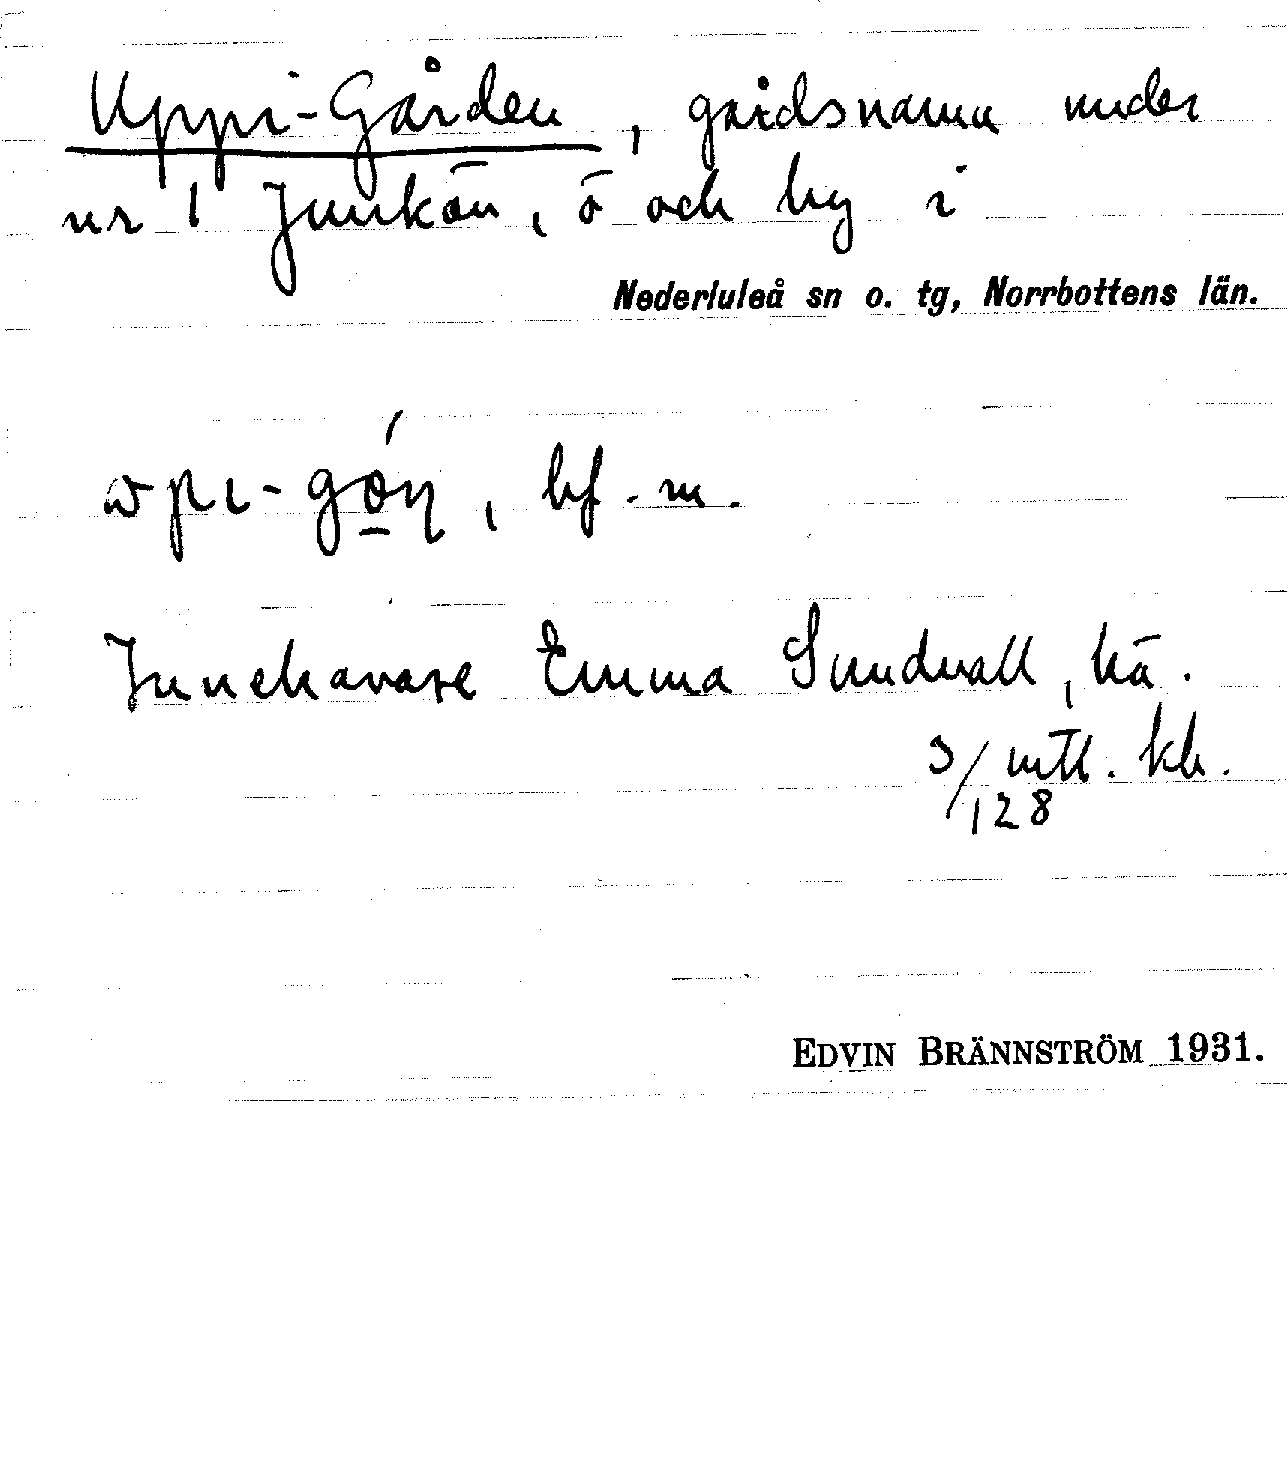 Uppi-Gården, gårdsnamn under
nr 1 Junkön, ö och by i
Nederluleå sn o. tg, Norrbottens län.
bf. m.
Innehavare Emma Sundvall, hä.
3/128 mtl. kh.
EDVIN BRÄNNSTRÖM 1931.